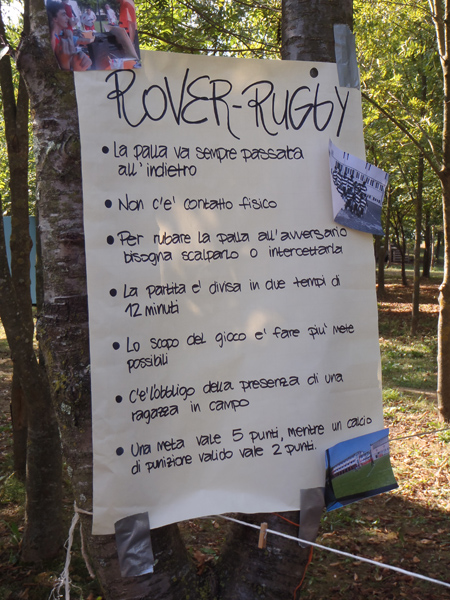 ROVER-RUGBY
• La palla va sempre passata
all'indietro
• Non c'e' contatto fisico
• Per rubare la palla all'avversario
bisogna scalparlo o intercettarla
• La partita e' divisa in due tempi di
12 minuti
• Lo scopo del gioco e' fare piu' mete
possibili
• C'e' l'obbligo della presenza di una
ragazza in campo
• Una meta vale 5 punti, mentre un calcio
di punizione valido vale 2 punti.